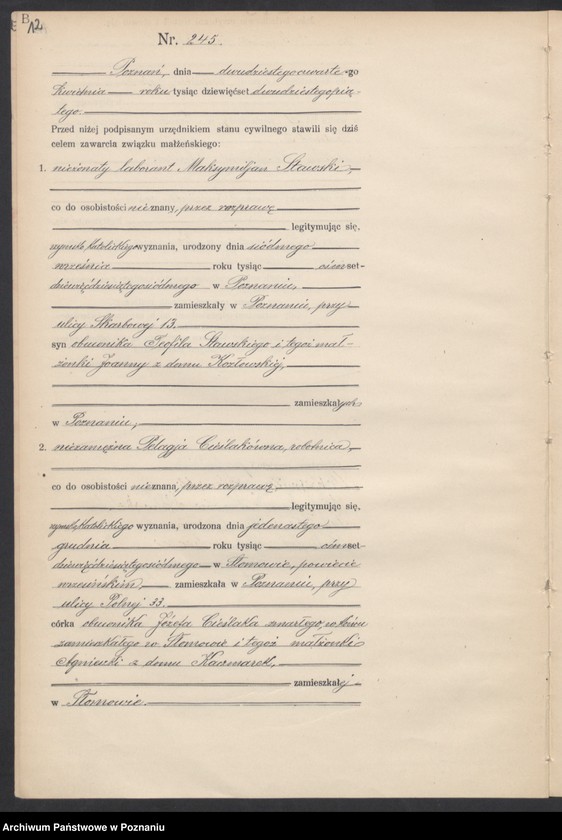 B
12
Nr. 245.
Poznań, dnia dwudziestegoczwarte-go
kwietnia roku tysiąc dziewięćset dwudziestegopią-
tego.
Przed niżej podpisanym urzędnikiem stanu cywilnego stawili się dziś
celem zawarcia związku małżeńskiego:
1. nieżonaty laborant Maksymiljan Stawski,
co do osobistości nieznany, przez rozprawę
legitymując się,
rzymsko katolickiego wyznania, urodzony dnia siódmego
września roku tysiąc ośmset-
dziewięćdziesiątegosiódmego w Poznaniu,
zamieszkały w Poznaniu, przy
ulicy Skarbowej 13.
syn obuwnika Teofila Stawskiego i tegoż mał-
żonki Joanny z domu Kozłowskiej,
zamieszkałych
w Poznaniu,
2. niezamężna Pelagja Cieślakówna, robotnica,
co do osobistości nieznana, przez rozprawę
legitymując się,
rzymsko katolickiego wyznania, urodzona dnia jedenastego
grudnia roku tysiąc ośmset-
dziewięćdziesiątegosiódmego w Słomowie, powiecie
wrzesińskim, zamieszkała w Poznaniu, przy
ulicy Polnej 33.
córka obuwnika Józefa Cieślaka zmarłego,
zamieszkałego w Słomowie i tegoż małżonki
Agnieszki z domu Kaczmarek,
zamieszkałej
w Słomowie.
Archiwum Państwowe w Poznaniu